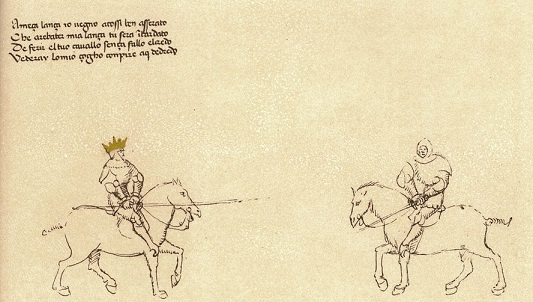 Ameça lança io uegno acossi ben asserato
Che arebater mia lança tu sera ītardato
De ferir el tuo cauallo sença fallo elcredo
Vederay lomio çogho conpire aq dedredo